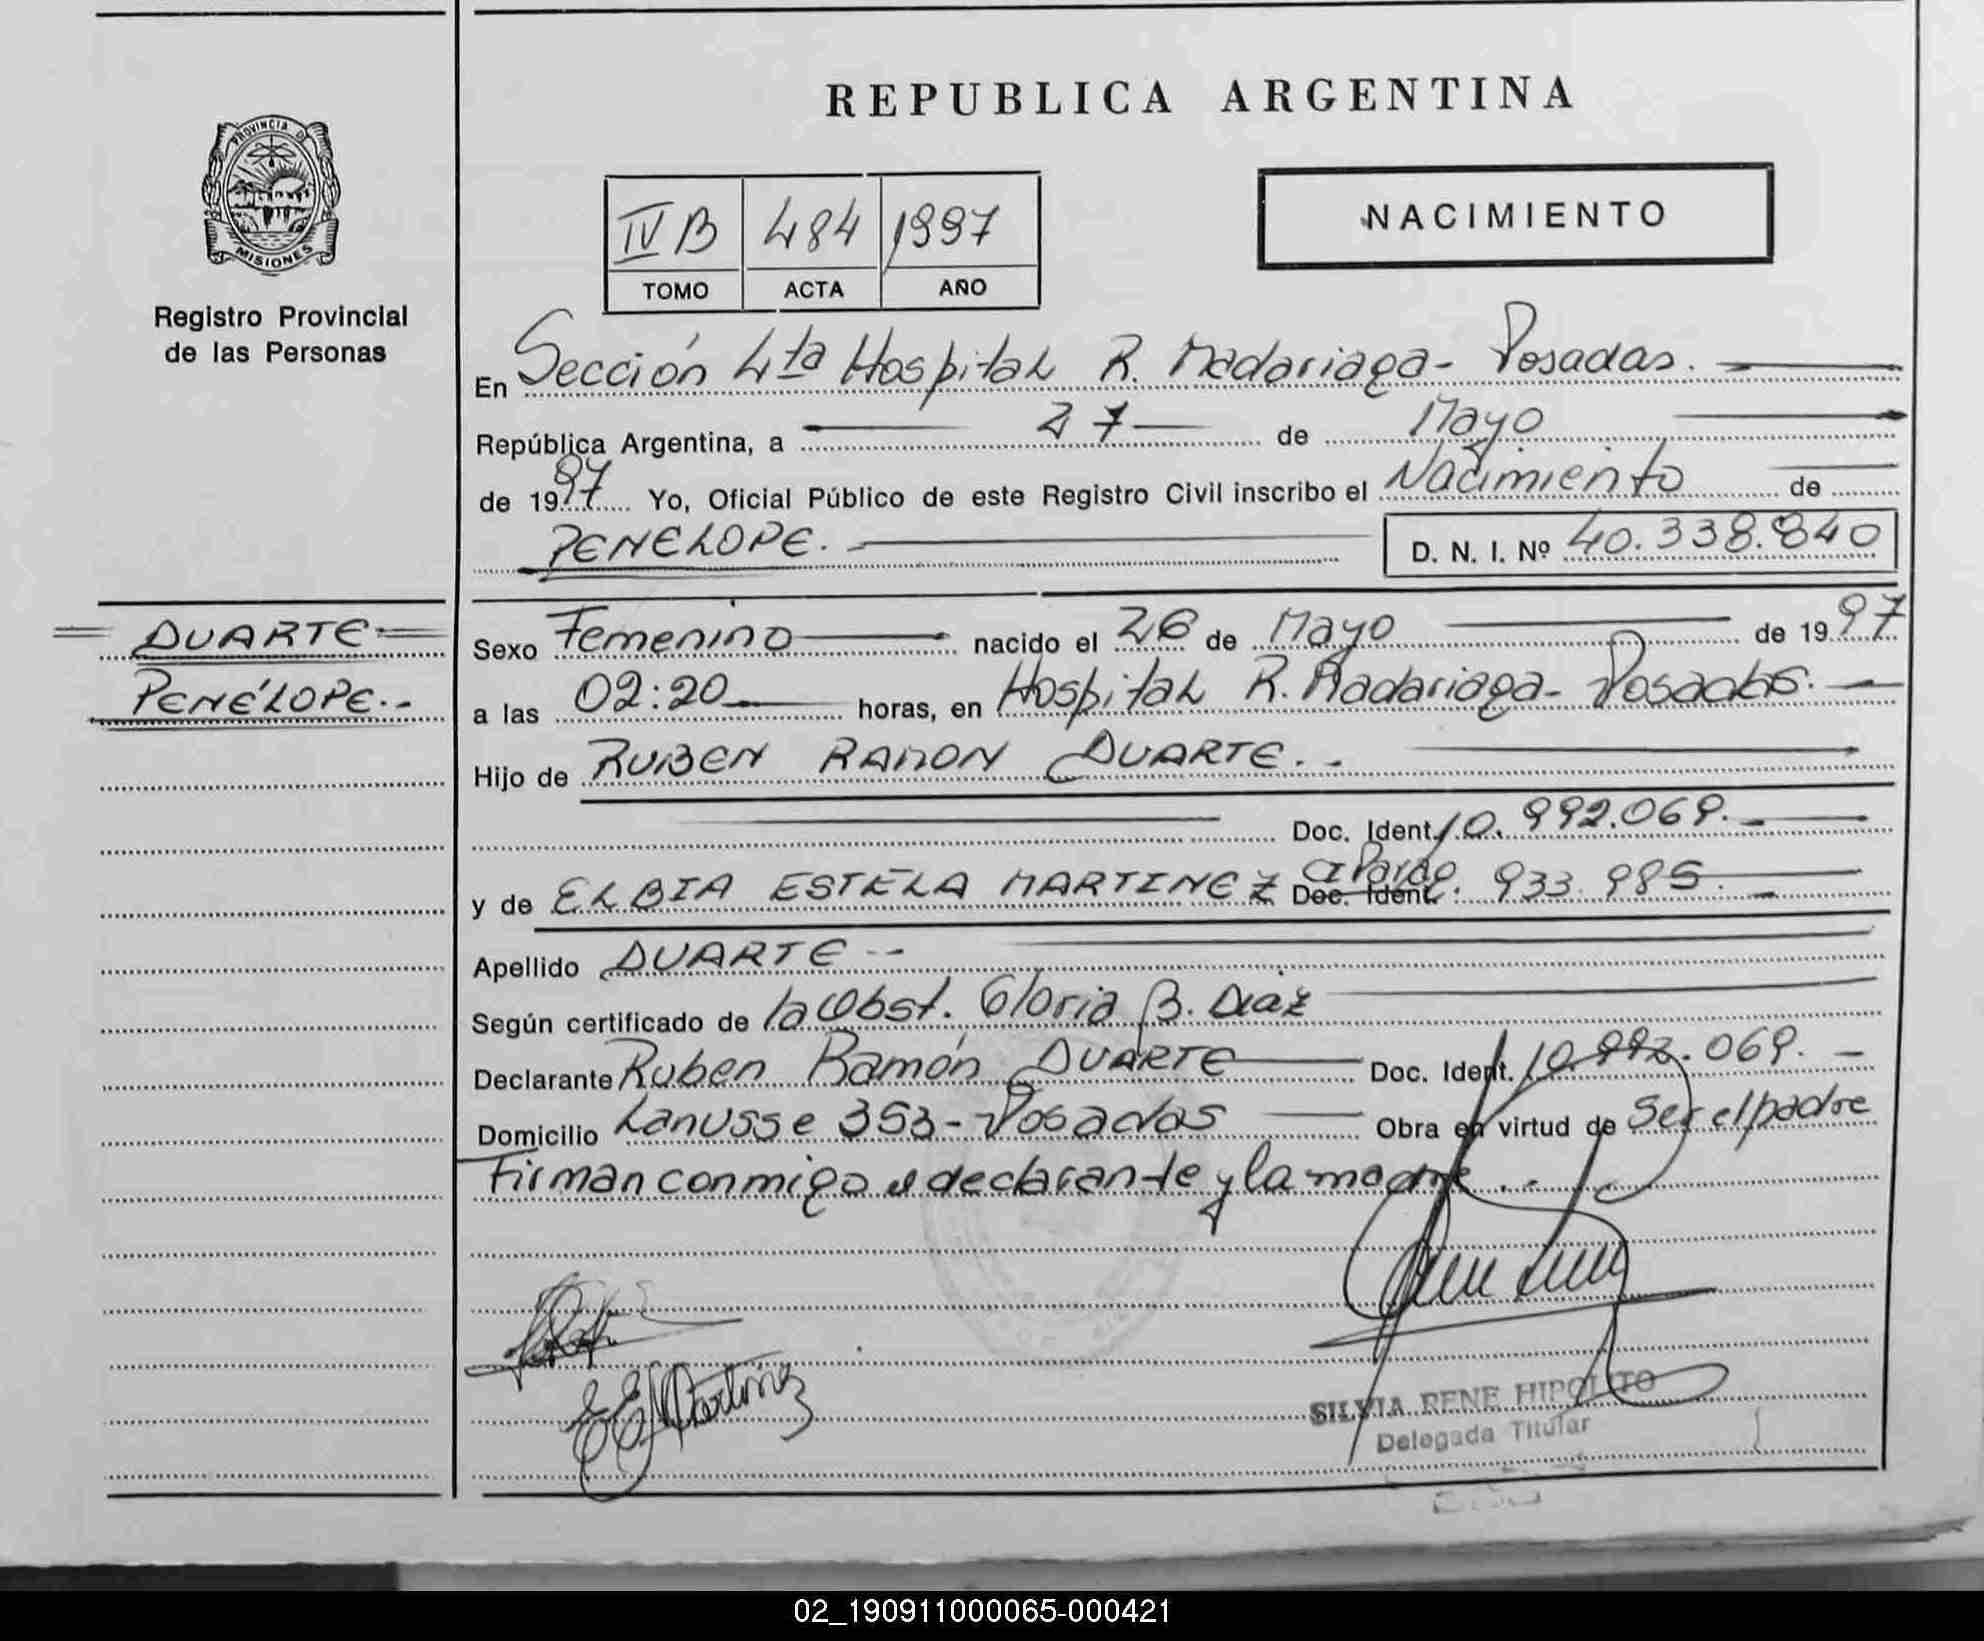 REPUBLICA ARGENTINA
PROVINCIA DE
MISIONES
Registro Provincial
de las Personas
IV B 484 1997
TOMO ACTA AÑO
NACIMIENTO
En Sección 4ta Hospital R. Madariaga - Posadas.
República Argentina, a 27 de Mayo
de 1997 Yo, Oficial Público de este Registro Civil inscribo el Nacimiento de
PENELOPE. D. N. I. Nº 40.338.840
DUARTE
PENÉLOPE.-
Sexo Femenino nacido el 26 de Mayo de 1997
a las 02:20 horas, en Hospital R. Madariaga - Posadas.
Hijo de RUBEN RAMON DUARTE.-
Doc. Ident. 10.992.069.-
y de ELBIA ESTELA MARTINEZ Doc. Ident. 933.985.-
Apellido DUARTE --
Según certificado de la Obst. Gloria B. Diaz
Declarante Ruben Ramón DUARTE Doc. Ident. 10.992.069.-
Domicilio Lanusse 353 - Posadas Obra en virtud de Ser el padre
Firman conmigo el declarante y la madre.-
E E Martinez
SILVIA RENE HIPOLITO
Delegada Titular
02_190911000065-000421